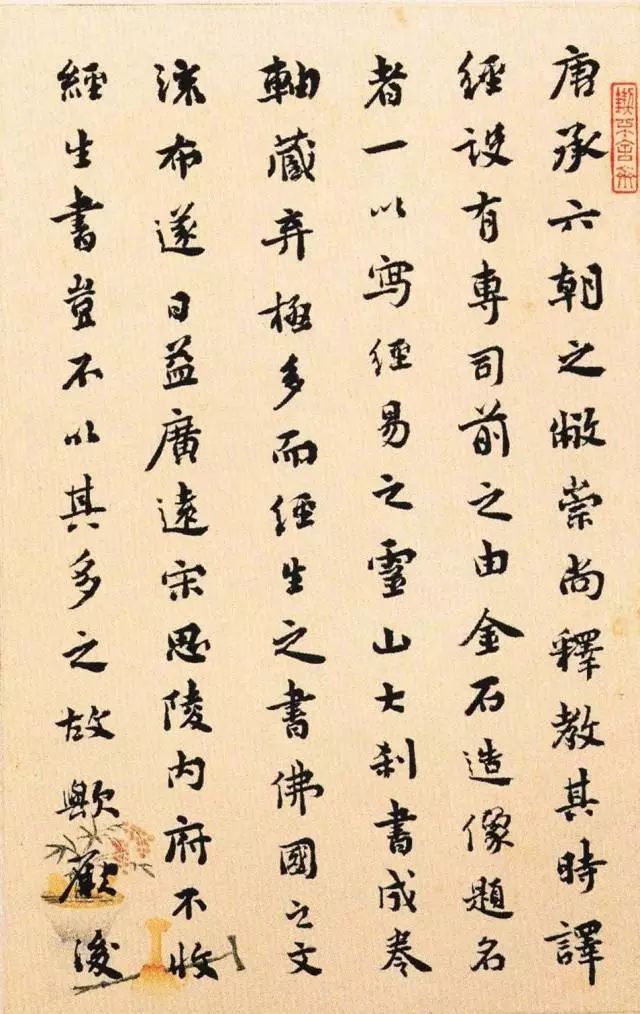 唐承六朝之敝崇尚釋教其時譯
經設有專司前之由金石造像題名
者一以寫經易之靈山大刹書成卷
軸藏弆極多而經生之書佛國之文
流布遂日益廣遠宋思陵内府不收
經生書豈不以其多之故歟歡後